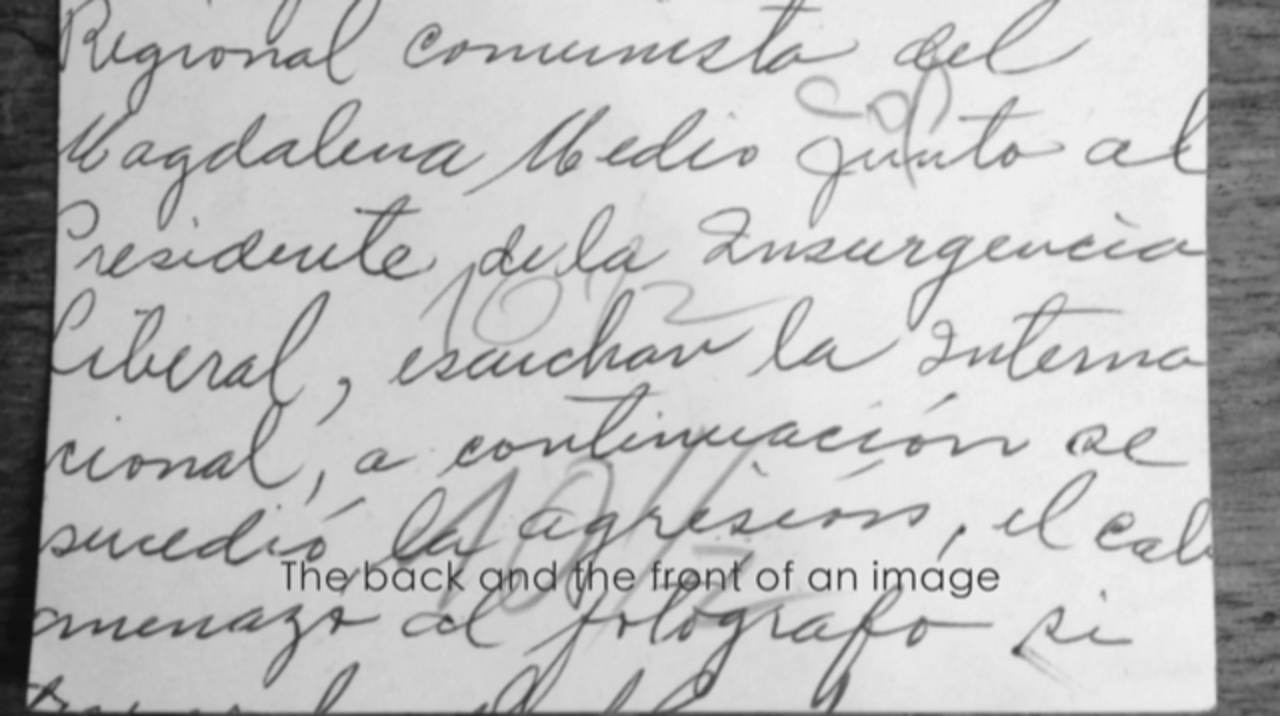 Regional comunista del
Magdalena Medio junto al
Presidente de la Insurgencia
liberal, escuchan la Interna
cional, a continuación se
sucedió la agresión, el cab
The back and the front of an image
amenazó al fotógrafo si